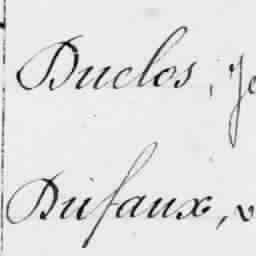 Duclos, Je
Dufaux, v